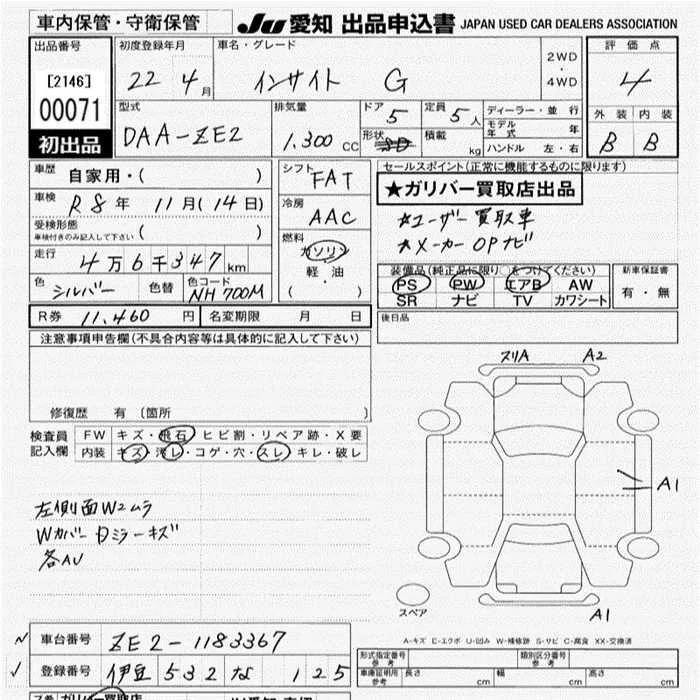 車内保管・守衛保管 JU 愛知 出品申込書 JAPAN USED CAR DEALERS ASSOCIATION
出品番号 初度登録年月 車名・グレード 2WD・4WD 評価点
[2146] 22 4月 インサイト G 4
00071 型式 排気量 ドア 5 定員 5人 ディーラー・並行 外装 内装
初出品 DAA-ZE2 1.300 CC 形状 積載 kg モデル年式 年 B B
ハンドル 左・右
車歴 自家用・( ) シフト FAT セールスポイント(正常に機能するものに限ります)
車検 R8年 11月(14日) 冷房 AAC ★ガリバー買取店出品
受検形態 ( ) ★ユーザー買取車
車検付きのみ記入して下さい 燃料 ★メーカーOPナビ
走行 4万6千347km ガソリン 装備品(純正品に限り○をつけてください) 新車保証書
色 シルバー 色替 色コード NH700M 軽・油 PS PW エアB AW 有・無
( ) SR ナビ TV カワシート
R券 11,460円 名変期限 月 日 後日品
注意事項申告欄(不具合内容等は具体的に記入して下さい)
スリA A2
修復歴 有 〔箇所 〕
検査員 FW キズ・飛石・ヒビ割・リペア跡・X要
記入欄 内装 キズ・汚レ・コゲ・穴・スレ・キレ・破レ
A1
左側面W2ムラ
Wカバー Dミラーキズ
各AU
スペア A1
A-キズ E-エクボ U-凹み W-補修跡 S-サビ C-腐食 XX-交換済
車台番号 ZE2-1183367
形式指定番号 参考 類別区分番号 参考
登録番号 伊豆 532 な 125
車庫証明用 参考 長さ cm 幅 cm 高さ cm
ガリバー買取店